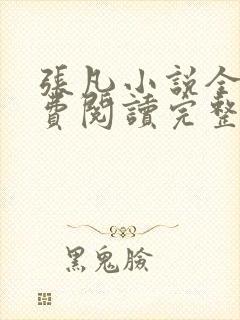 張凡小説全
費閱讀完整
黑鬼臉